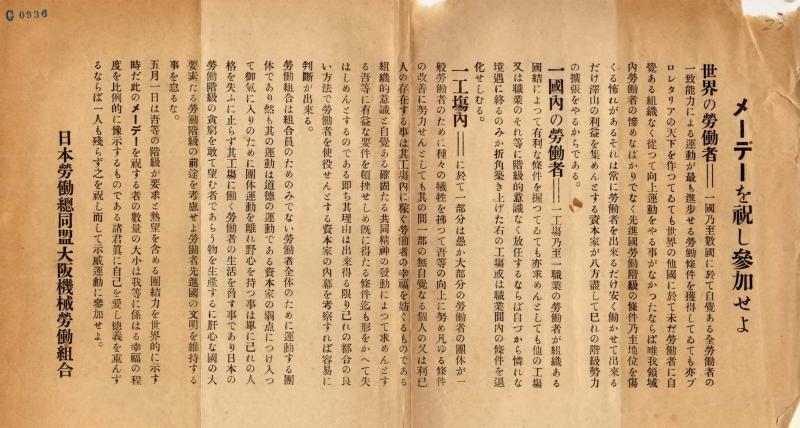 G 0936
メーデーを祝し參加せよ
世界の勞働者――一國乃至數國に於て自覺ある全勞働者の
一致能力による運動が最も進步せる勞働條件を獲得してゐても亦プ
ロレタリアの天下を作つてゐても世界の他國に於て未だ勞働者に自
覺ある組織なく從つて向上運動をやる事がなかつたならば唯我領域
內勞働者の慘めなばかりでなく先進國勞働階級の條件乃至地位を傷
くる怖れがあるそれは常に勞働者を出來るだけ安く働かせて出來る
だけ澤山の利益を集めんとする資本家が八方盡して巳れの階級勢力
の擴張をやるからである。
一國內の勞働者――一工場乃至一職業の勞働者が組織ある
團結によつて有利な條件を握つてゐても亦求めんとしても他の工塲
又は職業のそれ等に階級的意識なく放任するならば自づから憐れな
境遇に終るのみか折角築き上げた右の工塲或は職業間內の條件を退
化せしむる。
一工塲內――に於て一部分は愚か大部分の勞働者の團体が一
般勞働者のために種々の犧牲を拂つて吾等の向上に努め凡ゆる條件
の改善に努力せんとしても其の間一部の無自覺なる個人の又は利已
人の存在する事は其工塲內に稼ぐ勞働者の幸福を妨ぐるものである
組織的意識と自覺ある確固たる共同精神の發動によつて求めんとす
る吾等に有益な要件を頓挫せしめ既に得たる條件迄も形をかへて失
はしめんとするのである即ち其理由は出來得る限り己れの都合の良
い方法で勞働者を使役せんとする資本家の內幕を考察すれば容易に
判斷が出來る。
勞働組合は組合員のためのみでない勞働者全体のために運動する團
体であり然も其の運動は道德の運動である資本家の弱点につけ入つ
て御氣に入りのために團体運動を離れ野心を持つ事は單に已れの人
格を失ふに止らず其工塲に働く勞働者の生活を脅す事であり日本の
勞働階級の貧窮を敢て望む者であらう物を生產するに肝心な國の大
要素たる勞働階級の前途を考慮せよ勞働者先進國の文明を維持する
事を怠るな。
五月一日は吾等の階級が要求と熱望を含める團結力を世界的に示す
時だ此のメーデーを祝する者の數量の大小は我等に係はる幸福の程
度を比例的に豫示するものである諸君眞に自己を愛し德義を重んず
るならば一人も殘らず之を祝し而して示威運動に參加せよ。
日本勞働總同盟大阪機械勞働組合